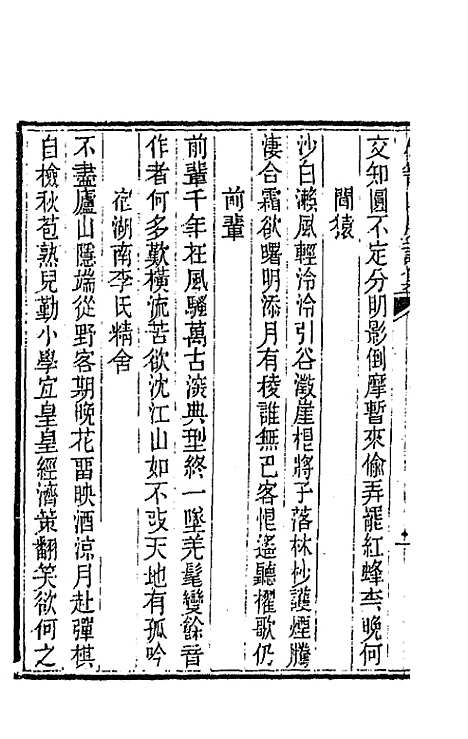 交知圓不定分明影倒摩暫來偷弄罷紅蜂李晚何
聞猿
沙白瀨風輕泠泠引谷澂崖相將子落林杪護煙騰
淒合霜欲曙明添月有棱誰無巴客恨遙聽櫂歌仍
前輩
前輩千年在風騷萬古深典型終一墜羌髦變餘音
作者何多歎橫流苦欲沈江山如不改天地有孤吟
宿湖南李氏精舍
不盡廬山隱端從野客期晚花畱映酒涼月赴彈棋
自檢秋苞熟兒勤小學宜皇皇經濟策翻笑欲何之